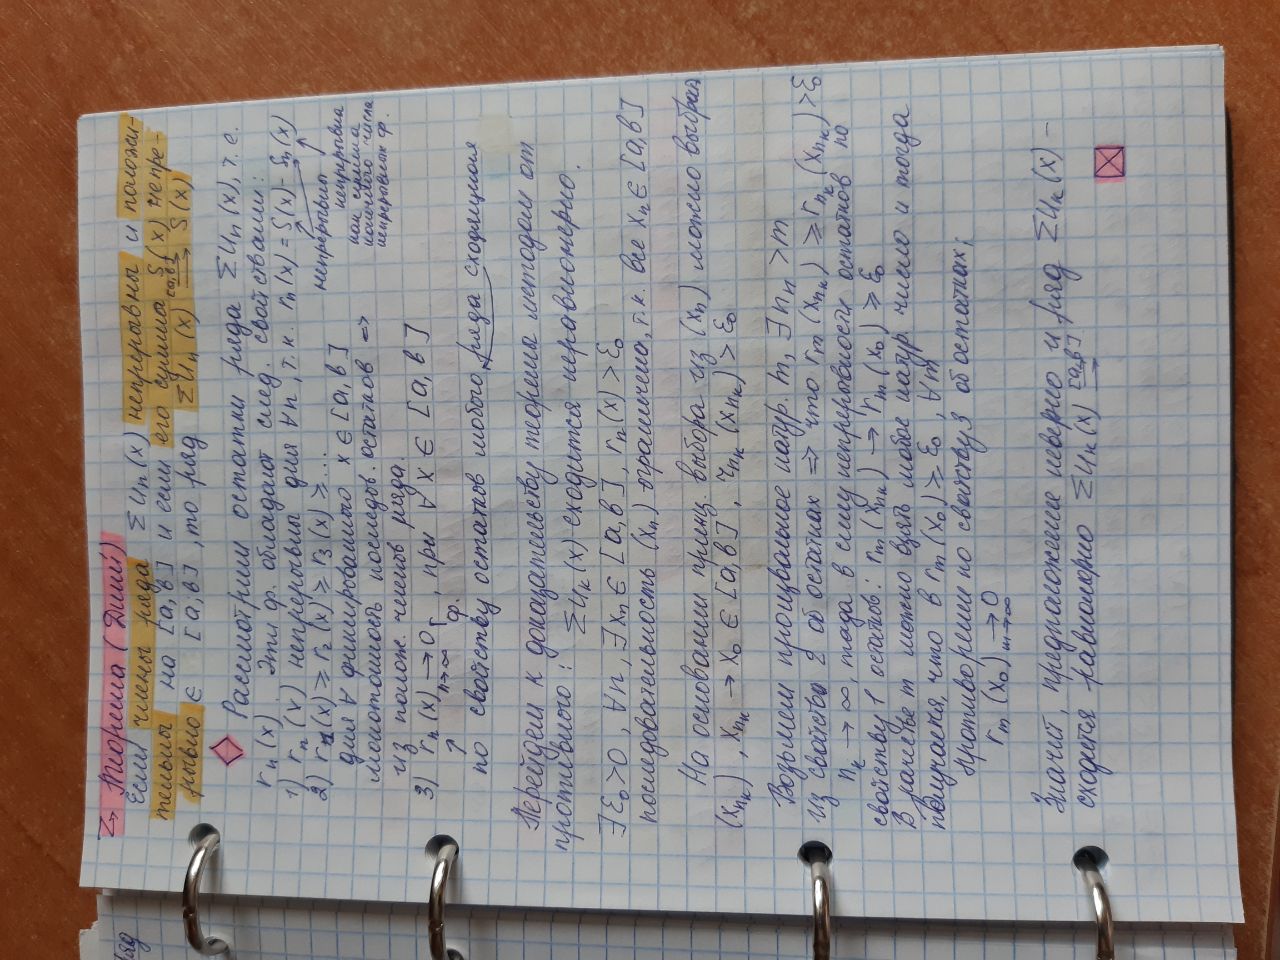 ряд
Теорема (Дини)
Если члены ряда ΣUₙ(x) непрерывны и положи-
тельны на [a,в] и если его сумма S(x) непре-
рывно ∈ [a;в], то ряд ΣUₙ(x) [a,в]⇉ S(x)
Рассмотрим остатки ряда ΣUₙ(x), т.е.
rₙ(x). Эти ф. обладают след. свойствами:
1) rₙ(x) непрерывны для ∀n, т.к. rₙ(x) = S(x) - Sₙ(x)
непрерывны
непрерывна
как сумма
конечного числа
непрерывных ф.
2) r₁(x) ≥ r₂(x) ≥ r₃(x) ≥ ...
для ∀ фиксированного x ∈ [a,в]
монотонность последов. остатков ⇒
из полож. членов ряда.
3) rₙ(x) →0 n→∞, при ∀ x ∈ [a,в]
ф.
по свойству остатков любого ряда сходящегося
Перейдем к доказательству теоремы методом от
противного: ΣUₖ(x) сходится неравномерно.
∃ε₀>0, ∀n, ∃xₙ ∈ [a,в], rₙ(x) > ε₀
последовательность (xₙ) ограничена, т.к. все xₙ ∈ [a,в]
На основании принц. выбора из (xₙ) можно выбрать
(xₙₖ), xₙₖ → x₀ ∈ [a,в], rₙₖ(xₙₖ) > ε₀
Возьмем произвольное натур. m, ∃ nₖ > m
Из свойства 2 об остатках ⇒ что rₘ(xₙₖ) ≥ rₙₖ(xₙₖ) > ε₀
nₖ → ∞, тогда в силу непрерывности остатков по
свойству 1 остатков: rₘ(xₙₖ) → rₘ(x₀) ≥ ε₀
В качестве m можно взять любое натур. число и тогда
получается, что в rₘ(x₀) ≥ ε₀, ∀m
Противоречие по свойству 3 об остатках;
rₘ(x₀) →0 m→∞
Значит, предположение неверно и ряд ΣUₖ(x) -
сходится равномерно ΣUₖ(x) [a,в]→